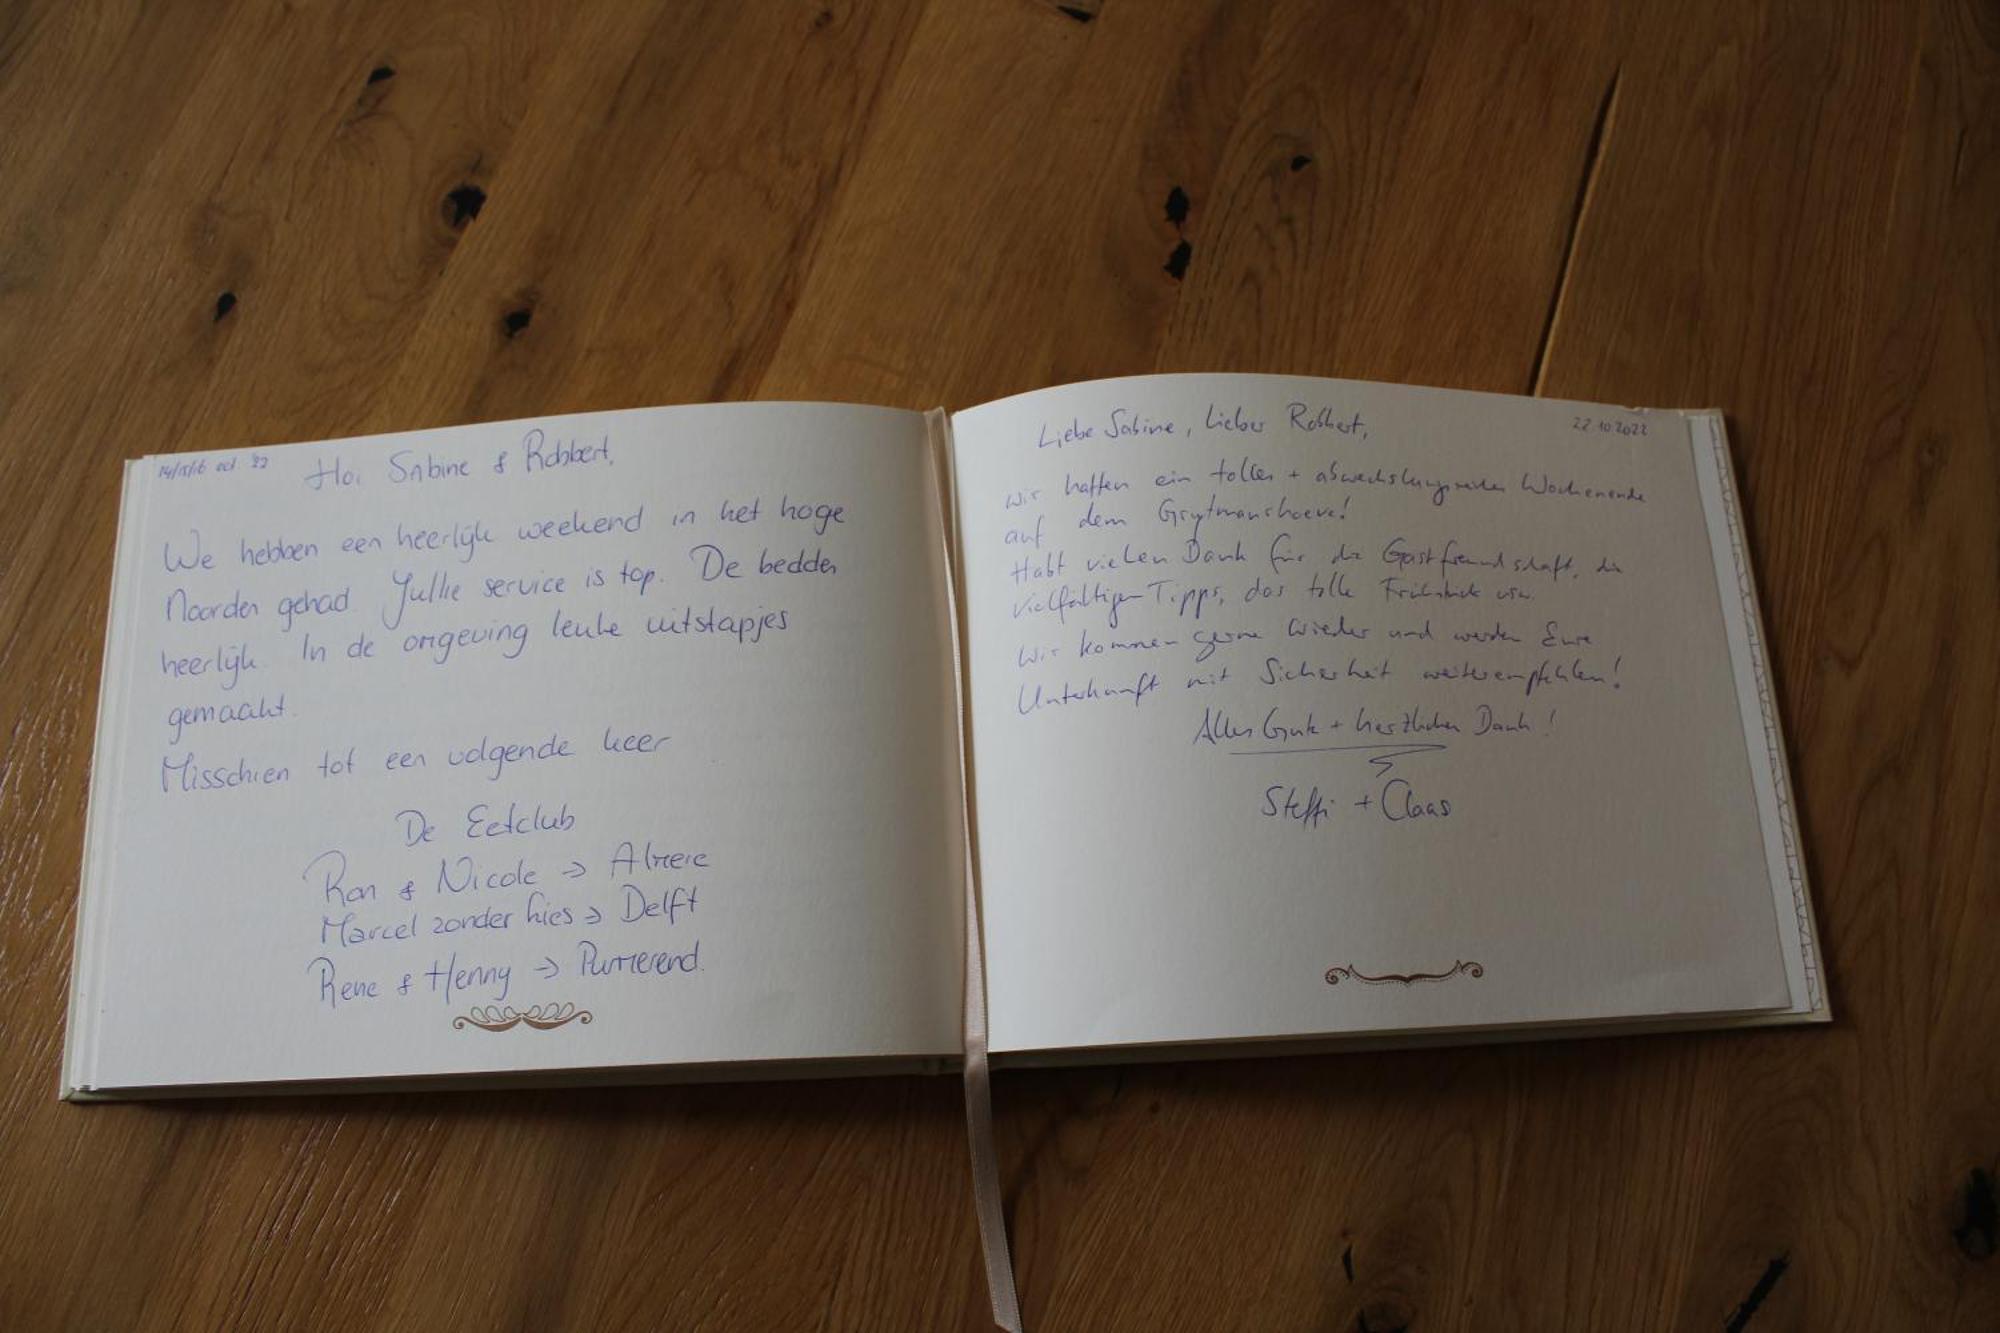 14/15/16 oct '22
Hoi Sabine & Robbert,
We hebben een heerlijk weekend in het hoge
Noorden gehad. Jullie service is top. De bedden
heerlijk. In de omgeving leuke uitstapjes
gemaakt.
Misschien tot een volgende keer
De Eetclub
Ron & Nicole → Almere
Marcel zonder hies → Delft
Rene & Henny → Purmerend.
22.10.2022
Liebe Sabine, Lieber Robbert,
wir hatten ein tolles + abwechslungsreiches Wochenende
auf dem Gruytmanshoeve!
Habt vielen Dank für die Gastfreundschaft, die
vielfältigen Tipps, das tolle Frühstück usw.
Wir kommen gerne wieder und werden Eure
Unterkunft mit Sicherheit weiterempfehlen!
Alles Gute + herzlichen Dank!
Steffi + Claas